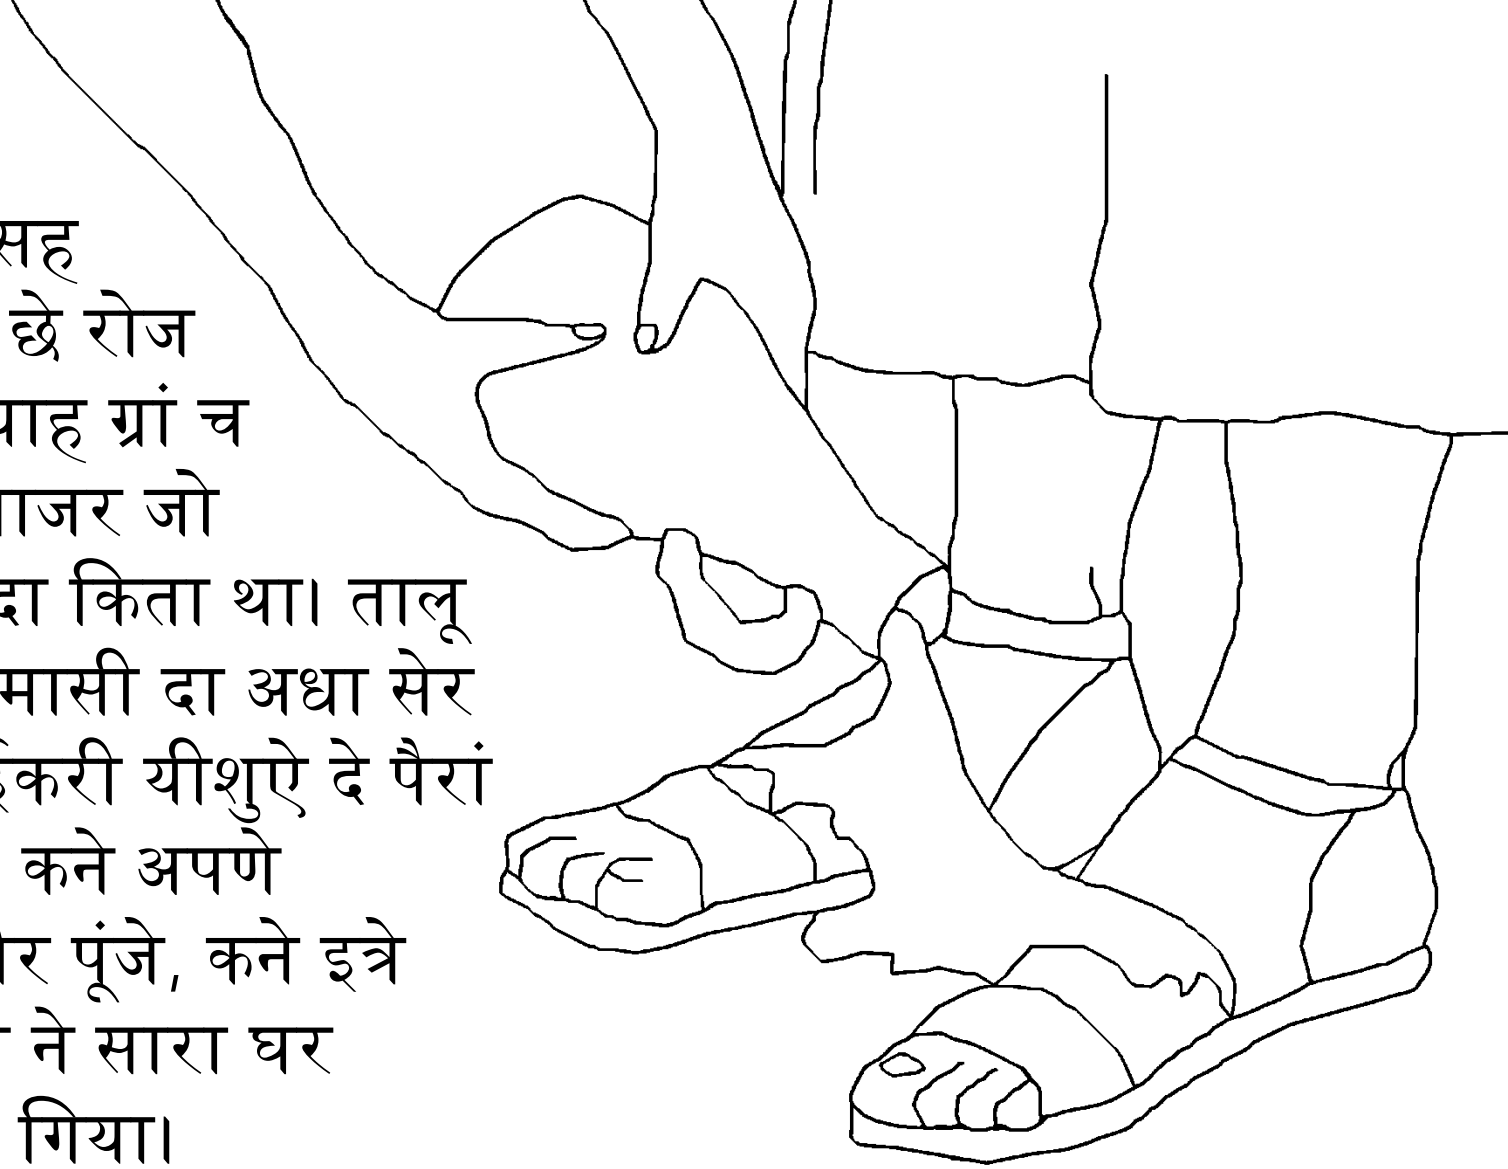 सह
छे रोज
याह ग्रां च
ाजर जो
दा किता था। तालू
मासी दा अधा सेर
ईकरी यीशुऐ दे पैरां
कने अपणे
ैर पूंजे, कने इत्रे
ने सारा घर
गिया।